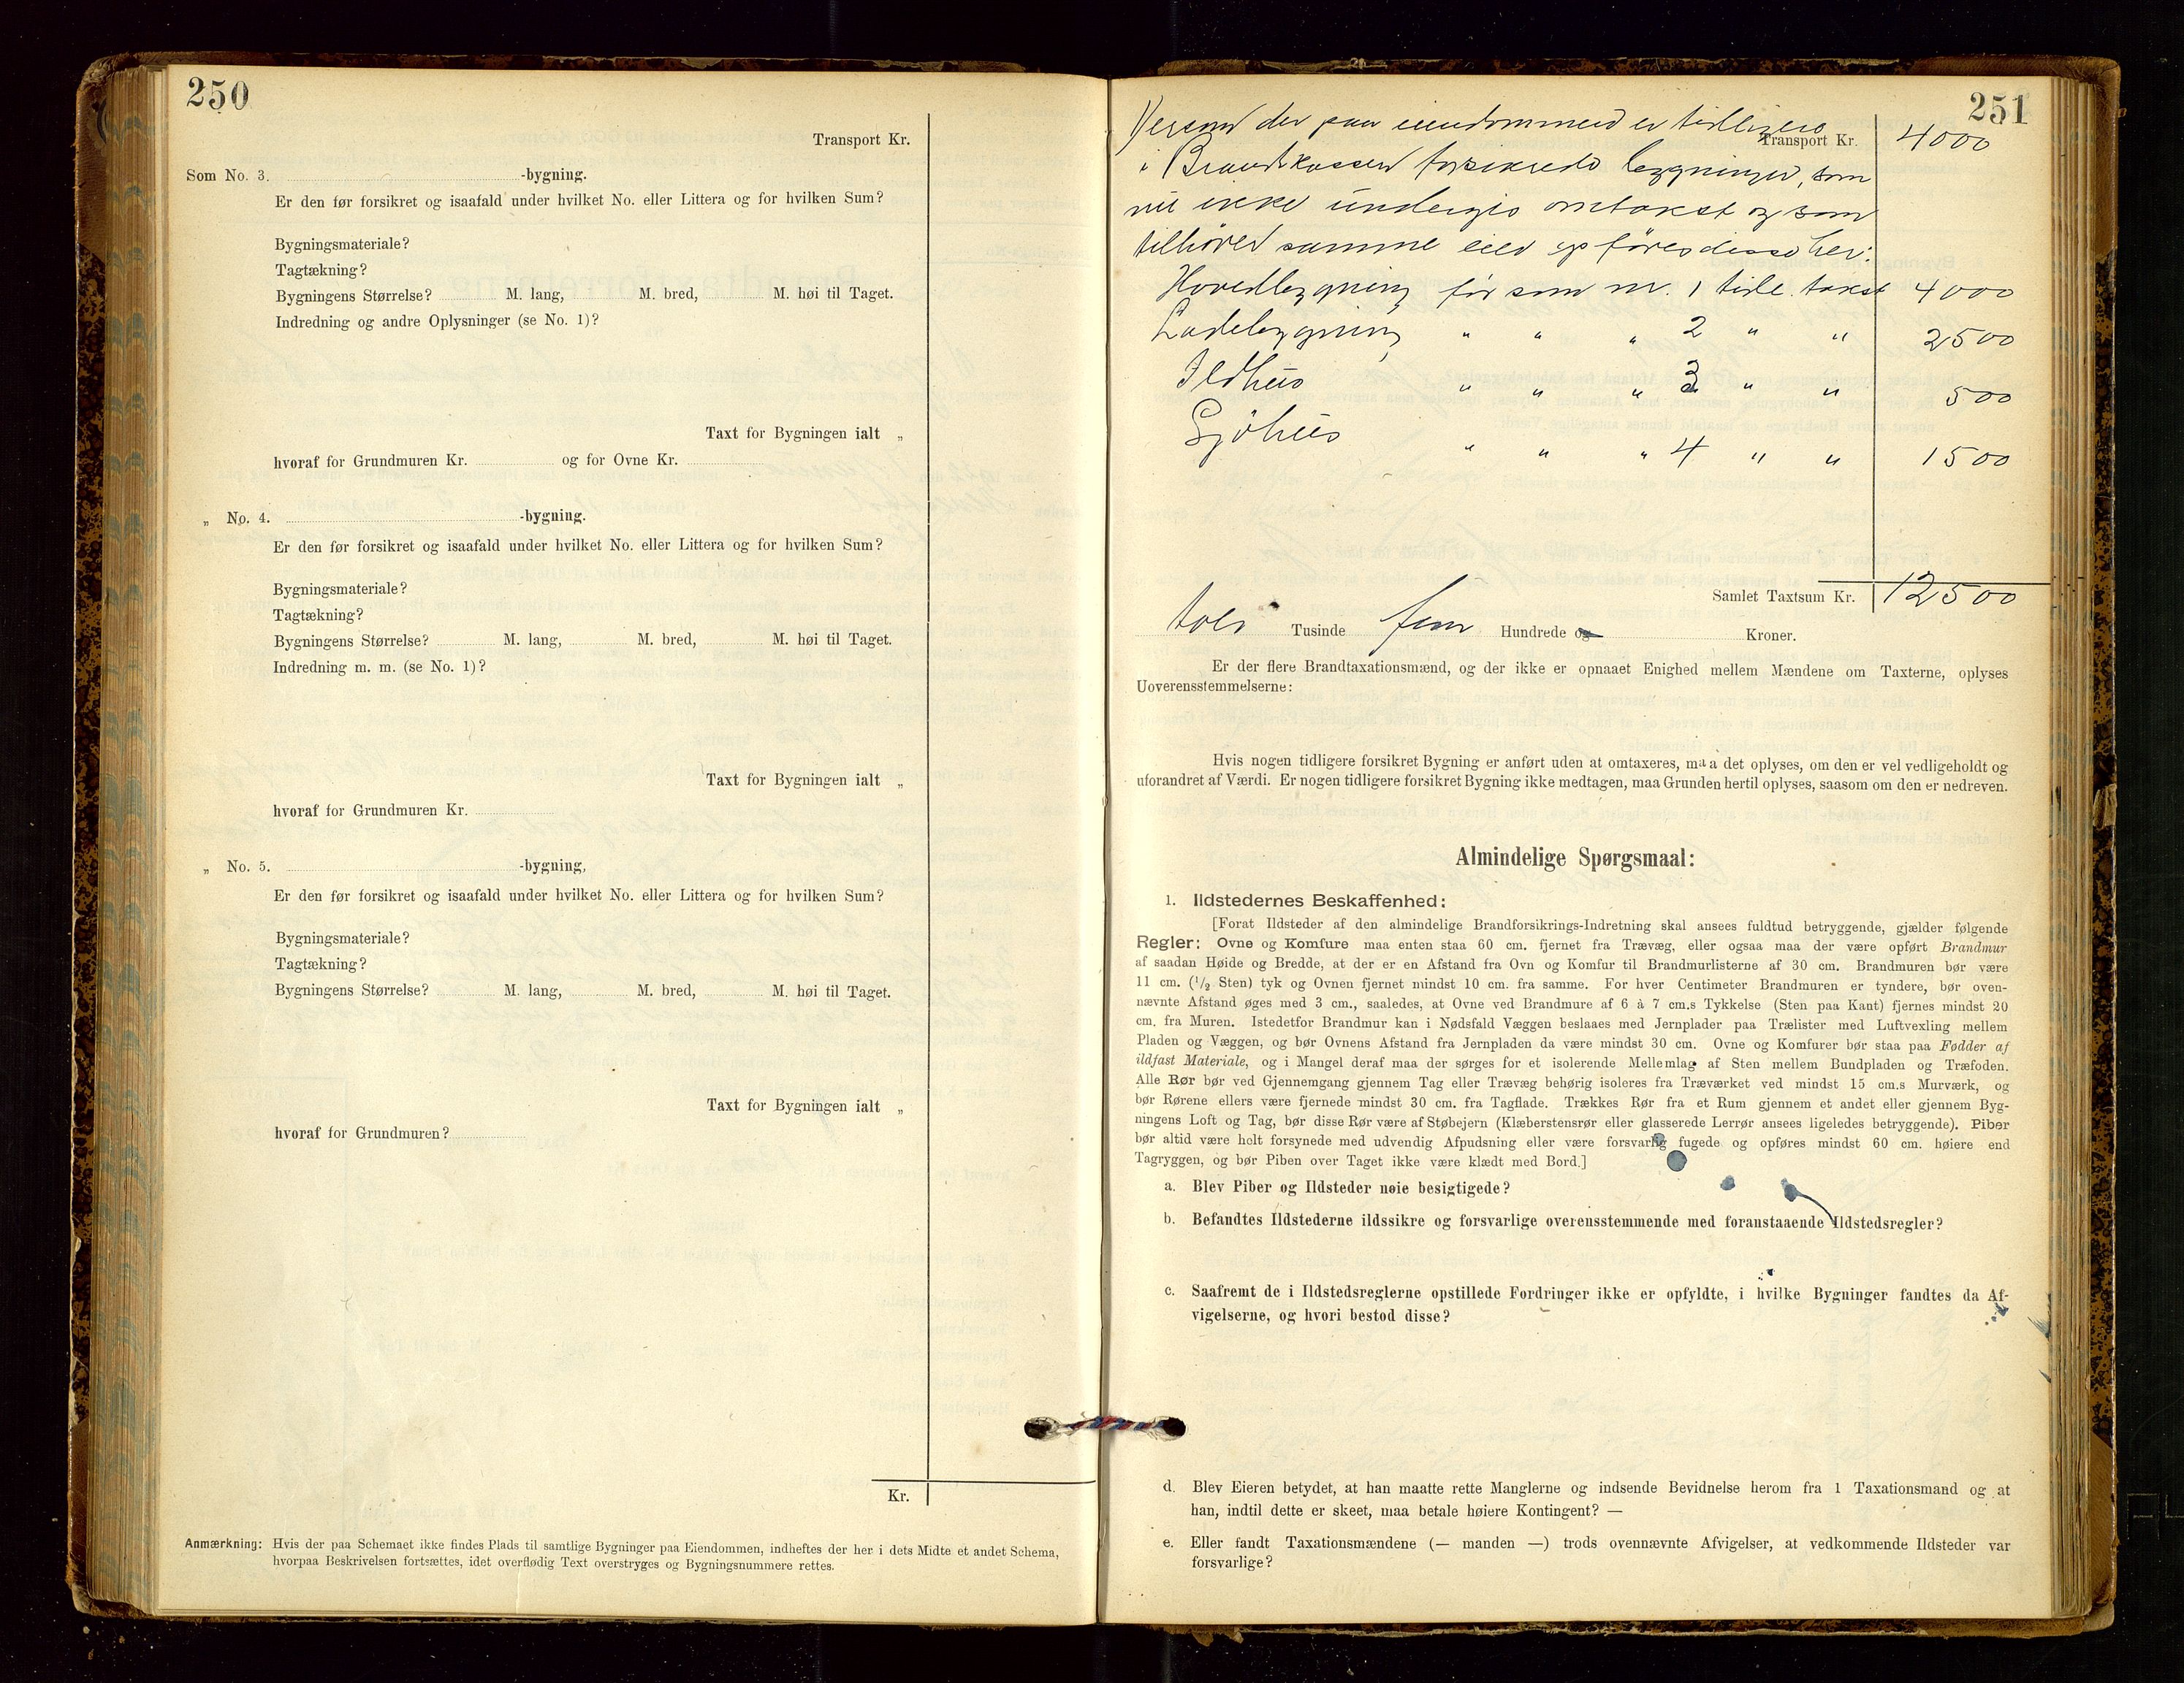 250
Transport Kr.
Som No. 3. -bygning.
Er den før forsikret og isaafald under hvilket No. eller Littera og for hvilken Sum?
Bygningsmateriale?
Tagtækning?
Bygningens Størrelse? M. lang, M. bred, M. høi til Taget.
Indredning og andre Oplysninger (se No. 1)?
Taxt for Bygningen ialt „
hvoraf for Grundmuren Kr. og for Ovne Kr.
„ No. 4. -bygning.
Er den før forsikret og isaafald under hvilket No. eller Littera og for hvilken Sum?
Bygningsmateriale?
Tagtækning?
Bygningens Størrelse? M. lang, M. bred, M. høi til Taget.
Indredning m. m. (se No. 1)?
Taxt for Bygningen ialt „
hvoraf for Grundmuren Kr.
„ No. 5. -bygning,
Er den før forsikret og isaafald under hvilket No. eller Littera og for hvilken Sum?
Bygningsmateriale?
Tagtækning?
Bygningens Størrelse? M. lang, M. bred, M. høi til Taget.
Taxt for Bygningen ialt „
hvoraf for Grundmuren?
Kr.
Anmærkning: Hvis der paa Schemaet ikke findes Plads til samtlige Bygninger paa Eiendommen, indheftes der her i dets Midte et andet Schema,
hvorpaa Beskrivelsen fortsættes, idet overflødig Text overstryges og Bygningsnummere rettes.
251
Desom der paa eiendommen er tidligere
Transport Kr. 4000
i Brandkassen forsikrede bygninger, som
nu ikke undergis omtakst og som
tilhører samme eier opføres disse her:
Hovedbygning før som nr. 1 tidl. takst 4000
Ladebygning " " " 2 " " 2500
Ildhus " " " 3 " " 500
Sjöhus " " " 4 " " 1500
Samlet Taxtsum Kr. 12500
tolv Tusinde fem Hundrede og Kroner.
Er der flere Brandtaxationsmænd, og der ikke er opnaaet Enighed mellem Mændene om Taxterne, oplyses
Uoverensstemmelserne:
Hvis nogen tidligere forsikret Bygning er anført uden at omtaxeres, maa det oplyses, om den er vel vedligeholdt og
uforandret af Værdi. Er nogen tidligere forsikret Bygning ikke medtagen, maa Grunden hertil oplyses, saasom om den er nedreven.
Almindelige Spørgsmaal:
1. Ildstedernes Beskaffenhed:
[Forat Ildsteder af den almindelige Brandforsikrings-Indretning skal ansees fuldtud betryggende, gjælder følgende
Regler: Ovne og Komfure maa enten staa 60 cm. fjernet fra Trævæg, eller ogsaa maa der være opført Brandmur
af saadan Høide og Bredde, at der er en Afstand fra Ovn og Komfur til Brandmurlisterne af 30 cm. Brandmuren bør være
11 cm. (1/2 Sten) tyk og Ovnen fjernet mindst 10 cm. fra samme. For hver Centimeter Brandmuren er tyndere, bør oven-
nævnte Afstand øges med 3 cm., saaledes, at Ovne ved Brandmure af 6 à 7 cm.s Tykkelse (Sten paa Kant) fjernes mindst 20
cm. fra Muren. Istedetfor Brandmur kan i Nødsfald Væggen beslaaes med Jernplader paa Trælister med Luftvexling mellem
Pladen og Væggen, og bør Ovnens Afstand fra Jernpladen da være mindst 30 cm. Ovne og Komfurer bør staa paa Fødder af
ildfast Materiale, og i Mangel deraf maa der sørges for et isolerende Mellemlag af Sten mellem Bundpladen og Træfoden.
Alle Rør bør ved Gjennemgang gjennem Tag eller Trævæg behørig isoleres fra Træværket ved mindst 15 cm.s Murværk, og
bør Rørene ellers være fjernede mindst 30 cm. fra Tagflade. Trækkes Rør fra et Rum gjennem et andet eller gjennem Byg-
ningens Loft og Tag, bør disse Rør være af Støbejern (Klæberstensrør eller glasserede Lerrør ansees ligeledes betryggende). Piber
bør altid være helt forsynede med udvendig Afpudsning eller være forsvarlig fugede og opføres mindst 60 cm. høiere end
Tagryggen, og bør Piben over Taget ikke være klædt med Bord.]
a. Blev Piber og Ildsteder nøie besigtigede?
b. Befandtes Ildstederne ildssikre og forsvarlige overensstemmende med foranstaaende Ildstedsregler?
c. Saafremt de i Ildstedsreglerne opstillede Fordringer ikke er opfyldte, i hvilke Bygninger fandtes da Af-
vigelserne, og hvori bestod disse?
d. Blev Eieren betydet, at han maatte rette Manglerne og indsende Bevidnelse herom fra 1 Taxationsmand og at
han, indtil dette er skeet, maa betale høiere Kontingent? —
e. Eller fandt Taxationsmændene (— manden —) trods ovennævnte Afvigelser, at vedkommende Ildsteder var
forsvarlige?